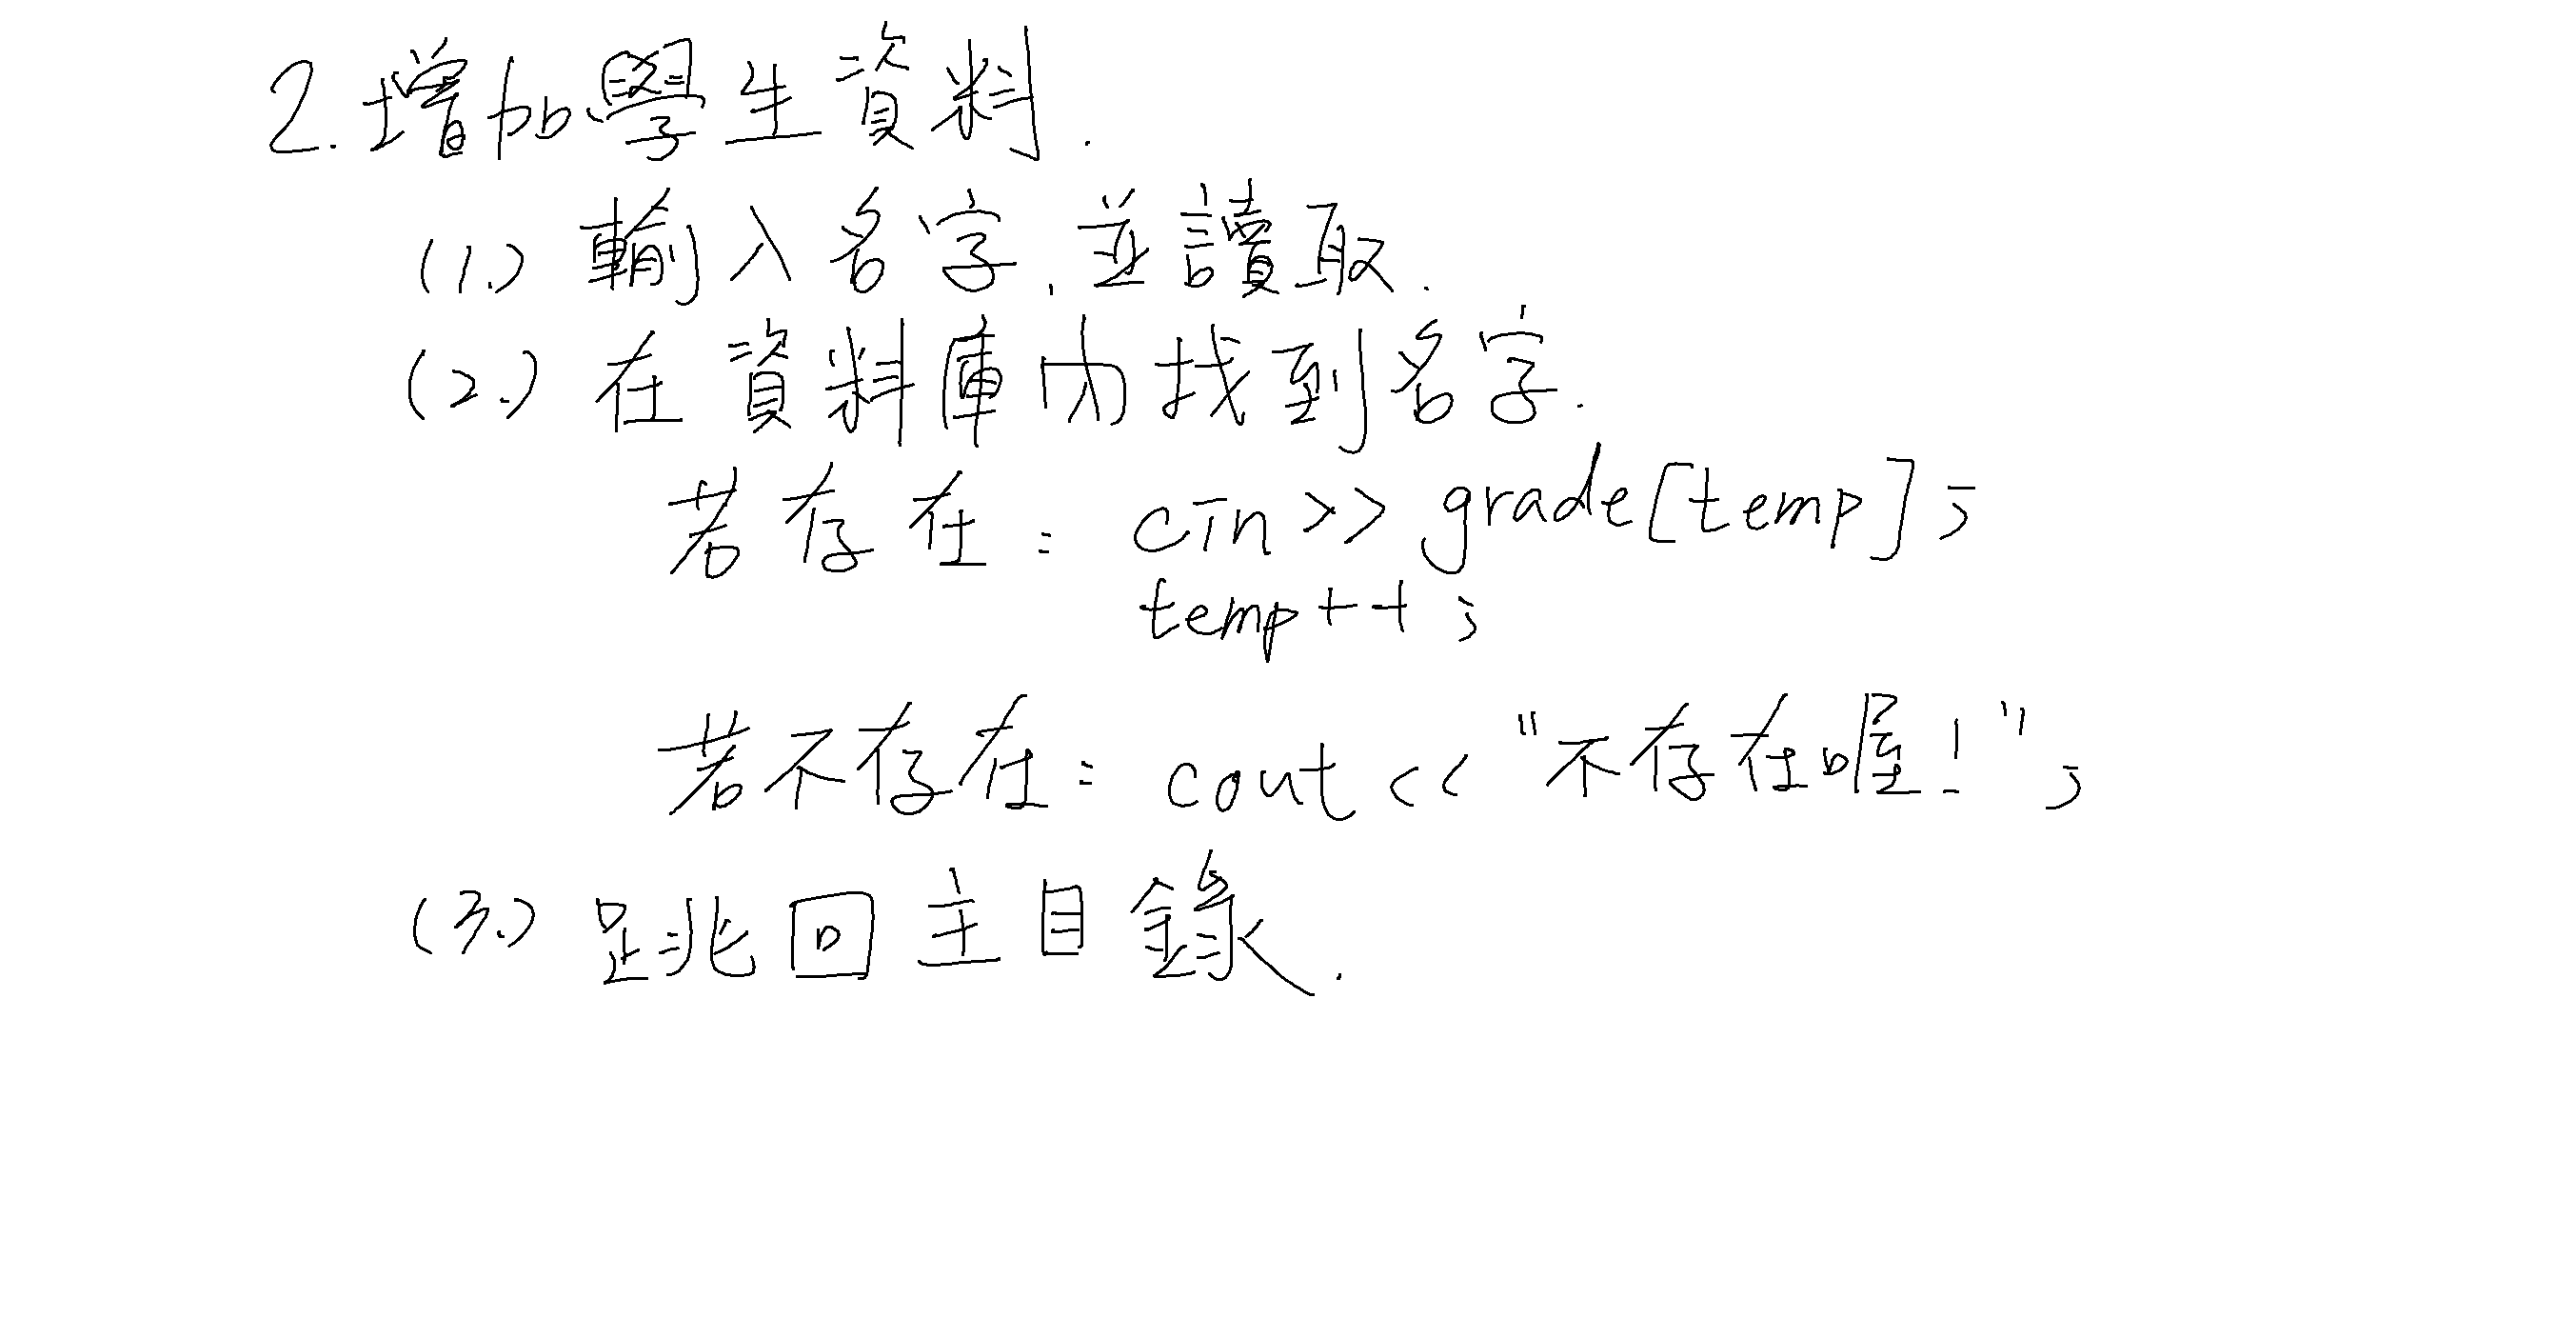 2. 增加學生資料.
(1.) 輸入名字, 並讀取.
(2.) 在資料庫內找到名字.
若存在: cin >> grade[temp];
temp++;
若不存在: cout << "不存在喔!";
(3.) 跳回主目錄.